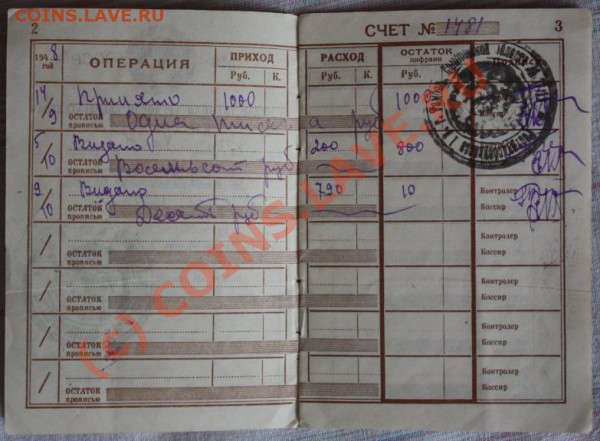 COINS.LAVE.RU
COINS.LAVE.RU
2
СЧЕТ № 1481
3
1948 год
ОПЕРАЦИЯ
ПРИХОД
Руб. К.
РАСХОД
Руб. К.
ОСТАТОК
цифрами
Руб.
14/9 Принято 1000 1000
ОСТАТОК прописью Одна тысяча руб
5/10 Видано 200 800
ОСТАТОК прописью Восемьсот руб
9/10 Видано 790 10 Контролер
ОСТАТОК прописью Десять руб Кассир
/ Контролер
ОСТАТОК прописью Кассир
/ Контролер
ОСТАТОК прописью Кассир
/ Контролер
ОСТАТОК прописью Кассир
/ Контролер
ОСТАТОК прописью Кассир
(c) COINS.LAVE.RU